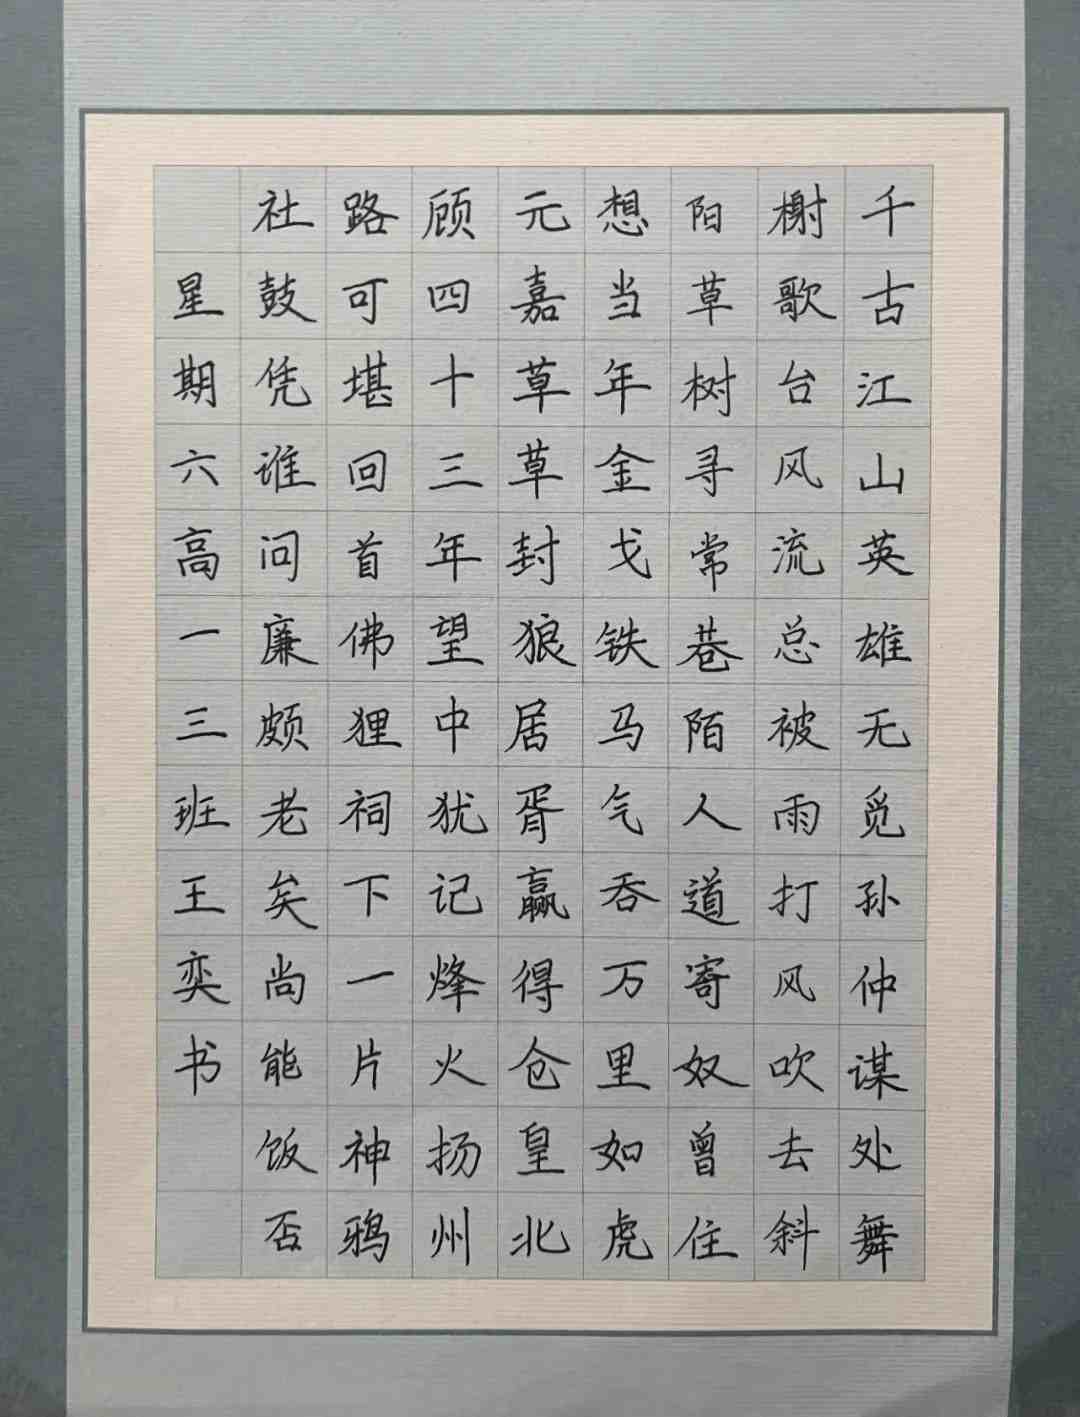 千古江山英雄无觅孙仲谋处舞
榭歌台风流总被雨打风吹去斜
阳草树寻常巷陌人道寄奴曾住
想当年金戈铁马气吞万里如虎
元嘉草草封狼居胥赢得仓皇北
顾四十三年望中犹记烽火扬州
路可堪回首佛狸祠下一片神鸦
社鼓凭谁问廉颇老矣尚能饭否
星期六高一三班王奕书